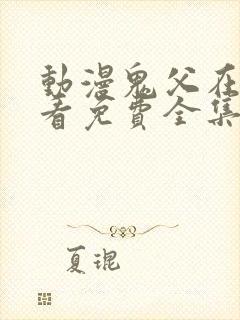 動漫鬼父在
看免費全集
夏琨